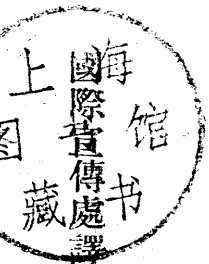 國際宣傳處譯
上海
图书馆
藏书